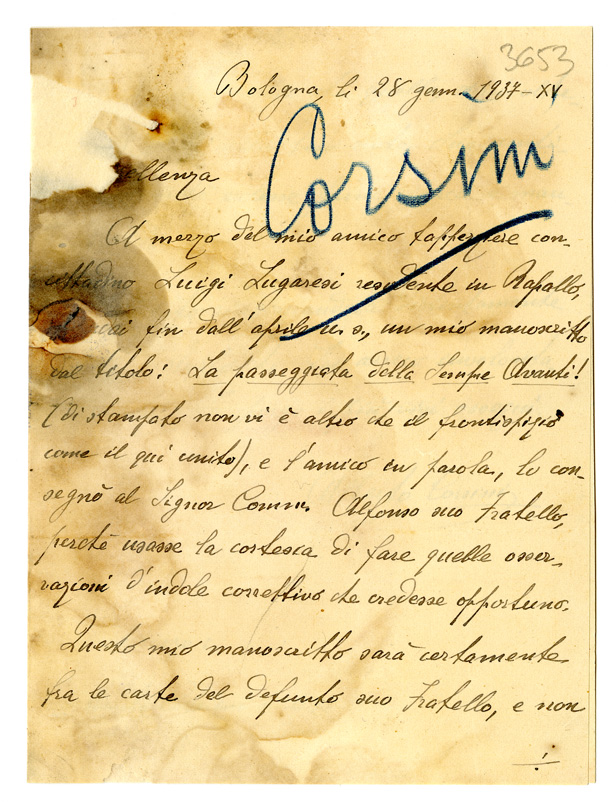 3653
Bologna, li 28 genn. 1937-XV
Corsini
ellenza
A mezzo del mio amico tappezziere con-
cittadino Luigi Lugaresi residente in Rapallo,
fin dall'aprile u. s., un mio manoscritto
dal titolo: La passeggiata della Sempre Avanti!
(di stampato non vi è altro che il frontispizio
come il qui unito), e l'amico in parola, lo con-
segnò al Signor Comm. Alfonso suo Fratello,
perchè usasse la cortesia di fare quelle osser-
vazioni d'indole correttivo che credesse opportuno.
Questo mio manoscritto sarà certamente
fra le carte del defunto suo Fratello, e non